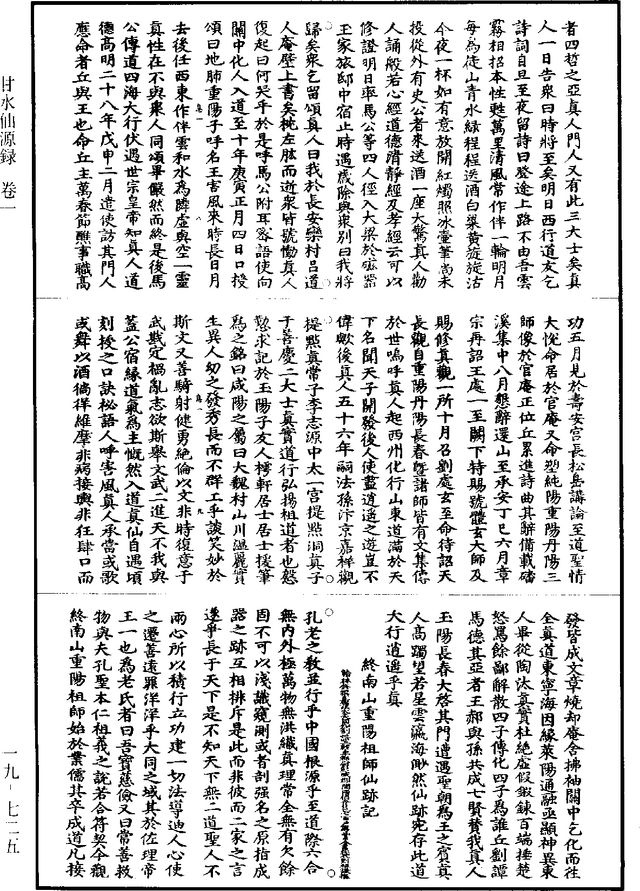 者四哲之亞真人門人又有此三大士矣真
人一日告衆曰時將至矣明日西行道友乞
詩詞自旦至夜留詩曰登途上路不由吾雲
霧相招本性甦萬里清風常作伴一輪明月
每為徒山青水綠程程送酒白梁黃旋旋沽
今夜一杯如有意放開紅燭照冰壺筆尚未
投從外有史公者來送酒一座大驚真人勸
人誦般若心經道德清靜經及孝經云可以
修證明日率馬公等四人徑入大梁於磁器
王家旅邸中宿止時遇歲除與衆別曰我將
歸矣衆乞留頌真人曰我於長安欒村呂道
人庵壁上書矣枕左肱而逝衆皆號慟真人
復起曰何哭乎於是呼馬公附耳密語使向
關中化人入道至十年庚寅正月四日口授
頌曰地肺重陽子呼名王害風來時長日月
去後任西東作伴雲和水為隣虛與空一靈
真性在不與衆人同頌畢儼然而終是後馬
公傳道四海大行伏遇世宗皇帝知真人道
德高明二十八年戊申二月遣使訪其門人
應命者丘與王也命丘主萬春節醮事職高
功五月見於壽安宮長松島講論至道聖情
大悅命居於官庵又命塑純陽重陽丹陽三
師像於官庵正位丘累進詩曲其辭備載磻
溪集中八月懇辭還山至承安丁巳六月章
宗再詔王處一至闕下特賜號體玄大師及
賜修真觀一所十月召劉處玄至命待詔天
長觀自重陽丹陽長春暨諸師皆有文集傳
於世嗚呼真人起西州化行山東道滿於天
下名聞天子開發後人使盡逍遙之遊豈不
偉歟後真人五十六年嗣法孫汴京嘉祥觀
提點真常子李志源中太一宮提點洞真子
于善慶二大士真實道行弘揚祖道者也懇
懃求記於玉陽子友人樗軒居士居士援筆
為之銘曰咸陽之屬曰大魏村山川溫麗實
生異人幼之發秀長而不群工乎談笑妙於
斯文又善騎射健勇絕倫以文非時復意于
武戡定禍亂志欲斯舉文武二進天不我與
蓋公宿緣道氣為主慨然入道真仙自遇頃
刻授之口訣秘語人呼害風真人承當或歌
或舞以酒徜徉維摩非病接輿非狂肆口而
發皆成文章燒却庵舍拂袖關中乞化而往
全真道東寧海因緣萊陽通融亟顯神異東
人畢從陶汰真實杜絕虛假鍛鍊百端捶楚
怒罵餘鄙解散四子傳化四子為誰丘劉譚
馬德其亞者王郝與孫共成七賢贊我真人
玉陽長春大啓其門遭遇聖朝為王之賓真
人高躅望若星雲瀛海眇然仙跡宛存此道
大行逍遙乎真
終南山重陽祖師仙跡記
孔老之教並行乎中國根源乎至道際六合
無內外極萬物無洪纖真理常全無有欠餘
固不可以淺識窺測或者剖強名之原指成
器之跡互相排斥是此而非彼而二家之言
遂爭長于天下是不知天下無二道聖人不
兩心所以積行立功建一切法導迪人心使
之遷善遠罪洋洋乎大同之域其於佐理帝
王一也為老氏者曰吾寶慈儉又曰常善救
物與夫孔聖本仁祖義之說若合符契今觀
終南山重陽祖師始於業儒其卒成道凡接
甘水仙源録 卷一
一九-七二五